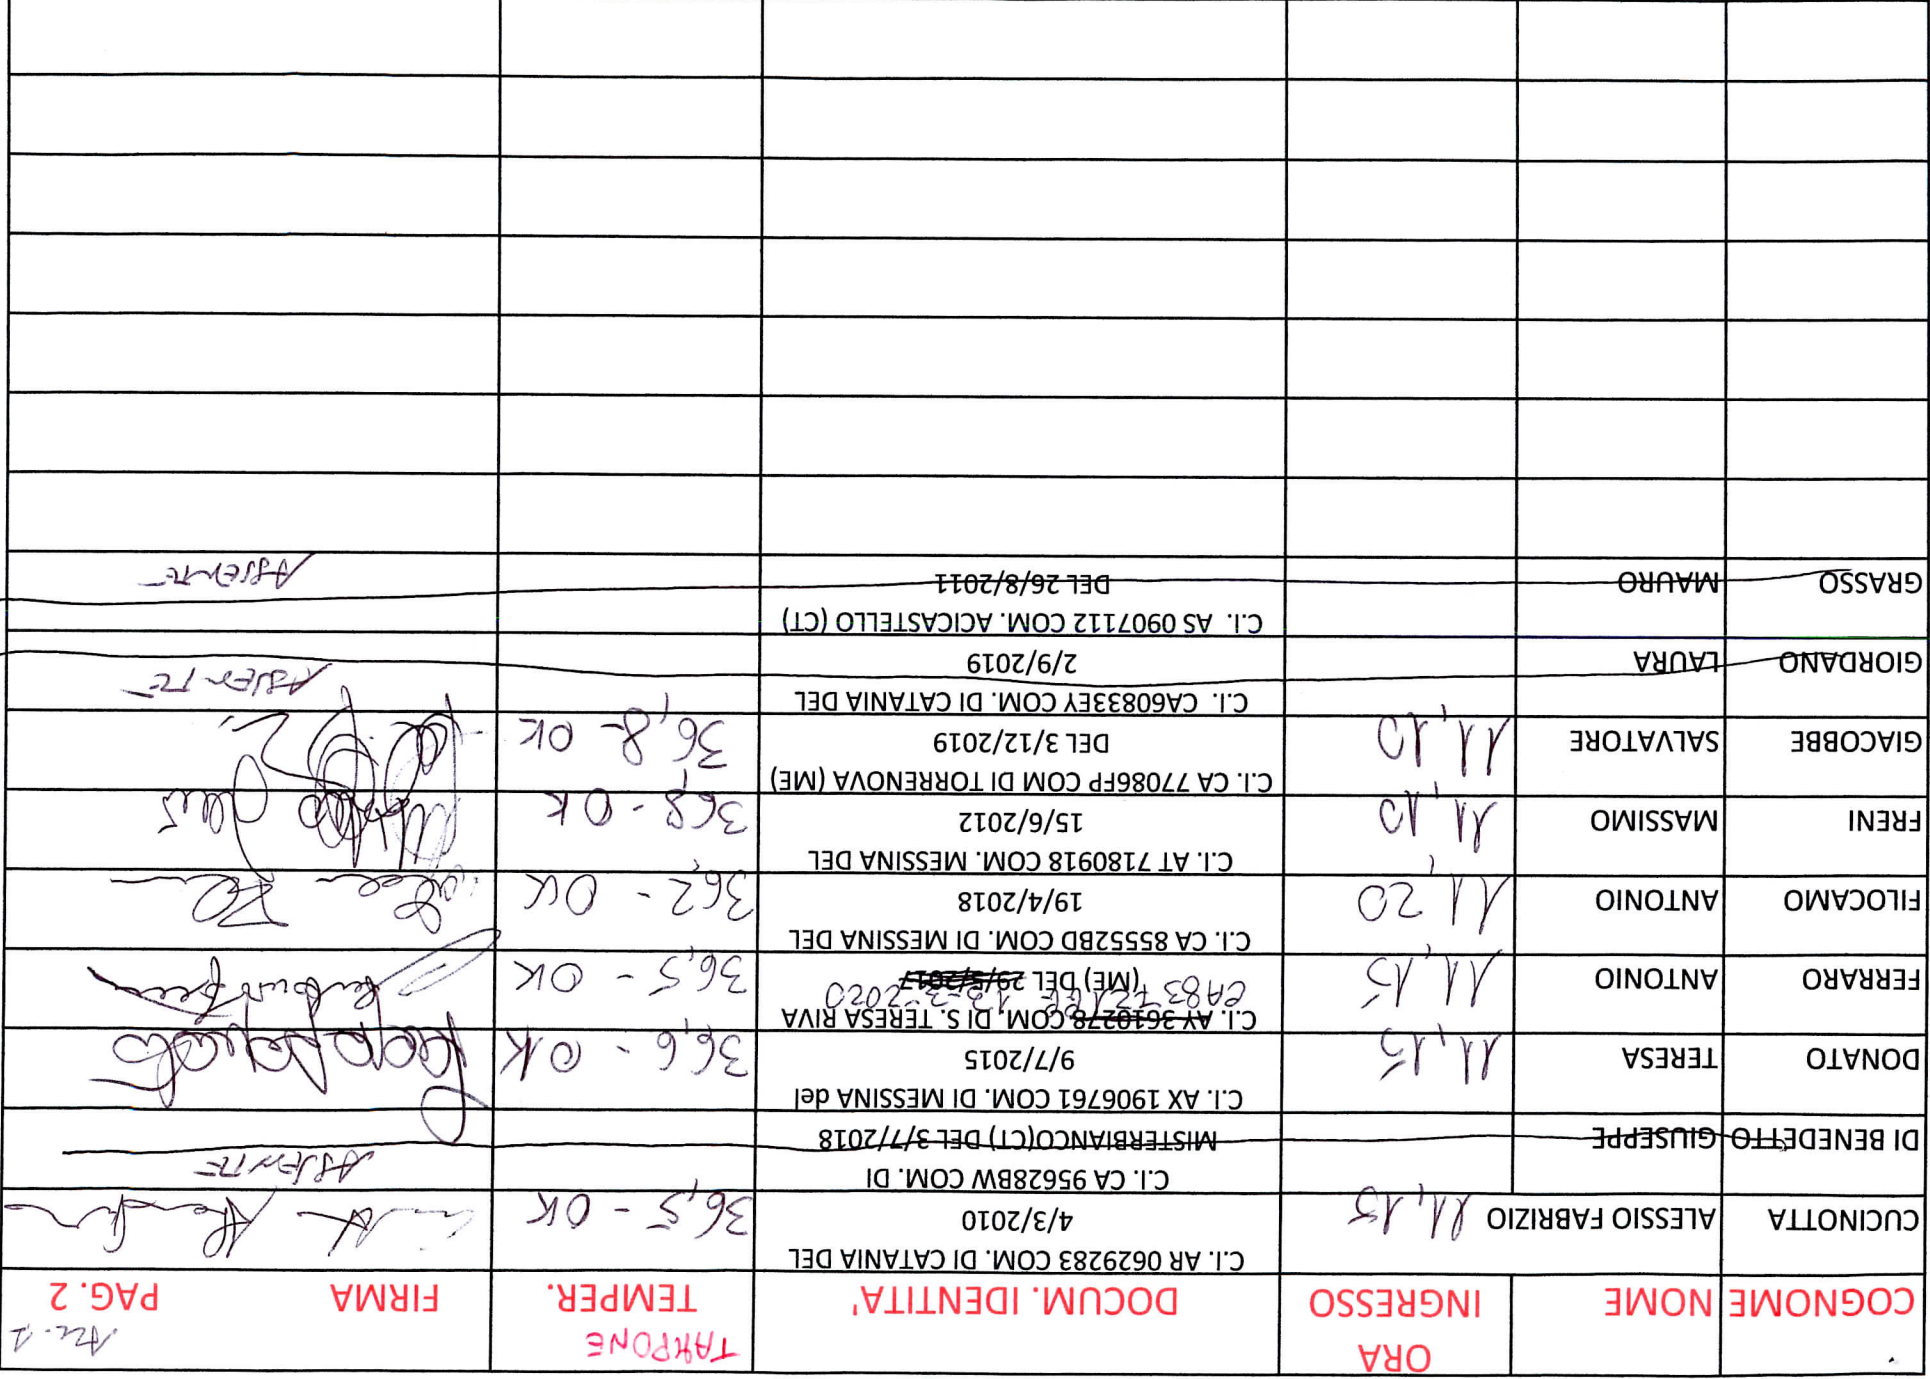 All. 1
COGNOME NOME ORA INGRESSO DOCUM. IDENTITA' TAMPONE TEMPER. FIRMA PAG. 2
CUCINOTTA ALESSIO FABRIZIO 11,15 C.I. AR 0629283 COM. DI CATANIA DEL 36,5 - OK
4/3/2010
DI BENEDETTO GIUSEPPE C.I. CA 95628BW COM. DI ASSENTE
MISTERBIANCO(CT) DEL 3/7/2018
DONATO TERESA 11,15 C.I. AX 1906761 COM. DI MESSINA del 36,6 - OK
9/7/2015
FERRARO ANTONIO 11,15 C.I. AY 3610278 COM. DI S. TERESA RIVA 36,5 - OK
(ME) DEL 29/5/2017
FILOCAMO ANTONIO 11,20 C.I. CA 85552BD COM. DI MESSINA DEL 36,2 - OK
19/4/2018
FRENI MASSIMO 11,10 C.I. AT 7180918 COM. MESSINA DEL 36,8 - OK
15/6/2012
GIACOBBE SALVATORE 11,10 C.I. CA 77086FP COM DI TORRENOVA (ME) 36,8 - OK
DEL 3/12/2019
GIORDANO LAURA C.I. CA60833EY COM. DI CATANIA DEL ASSENTE
2/9/2019
GRASSO MAURO C.I. AS 0907112 COM. ACICASTELLO (CT)
DEL 26/8/2011 ASSENTE